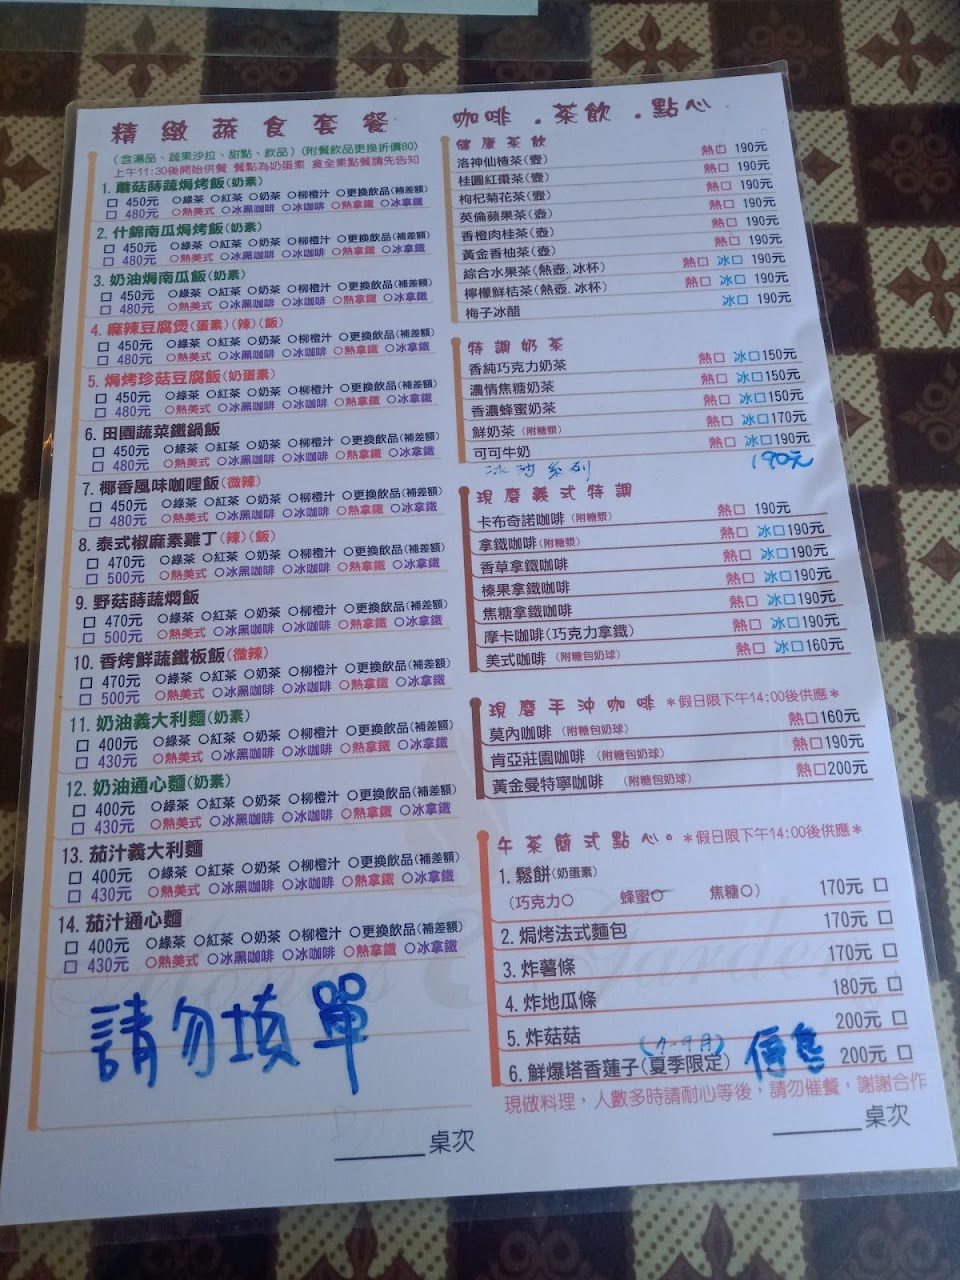 精緻蔬食套餐
(含湯品、蔬果沙拉、甜點、飲品)(附餐飲品更換折價80)
上午11:30後開始供餐 餐點為奶蛋素 食全素點餐請先告知
1. 蘑菇蒔蔬焗烤飯(奶素)
□ 450元 ○綠茶 ○紅茶 ○奶茶 ○柳橙汁 ○更換飲品(補差額)
□ 480元 ○熱美式 ○冰黑咖啡 ○冰咖啡 ○熱拿鐵 ○冰拿鐵
2. 什錦南瓜焗烤飯(奶素)
□ 450元 ○綠茶 ○紅茶 ○奶茶 ○柳橙汁 ○更換飲品(補差額)
□ 480元 ○熱美式 ○冰黑咖啡 ○冰咖啡 ○熱拿鐵 ○冰拿鐵
3. 奶油焗南瓜飯(奶素)
□ 450元 ○綠茶 ○紅茶 ○奶茶 ○柳橙汁 ○更換飲品(補差額)
□ 480元 ○熱美式 ○冰黑咖啡 ○冰咖啡 ○熱拿鐵 ○冰拿鐵
4. 麻辣豆腐煲(蛋素)(辣)(飯)
□ 450元 ○綠茶 ○紅茶 ○奶茶 ○柳橙汁 ○更換飲品(補差額)
□ 480元 ○熱美式 ○冰黑咖啡 ○冰咖啡 ○熱拿鐵 ○冰拿鐵
5. 焗烤珍菇豆腐飯(奶蛋素)
□ 450元 ○綠茶 ○紅茶 ○奶茶 ○柳橙汁 ○更換飲品(補差額)
□ 480元 ○熱美式 ○冰黑咖啡 ○冰咖啡 ○熱拿鐵 ○冰拿鐵
6. 田園蔬菜鐵鍋飯
□ 450元 ○綠茶 ○紅茶 ○奶茶 ○柳橙汁 ○更換飲品(補差額)
□ 480元 ○熱美式 ○冰黑咖啡 ○冰咖啡 ○熱拿鐵 ○冰拿鐵
7. 椰香風味咖哩飯(微辣)
□ 450元 ○綠茶 ○紅茶 ○奶茶 ○柳橙汁 ○更換飲品(補差額)
□ 480元 ○熱美式 ○冰黑咖啡 ○冰咖啡 ○熱拿鐵 ○冰拿鐵
8. 泰式椒麻素雞丁(辣)(飯)
□ 470元 ○綠茶 ○紅茶 ○奶茶 ○柳橙汁 ○更換飲品(補差額)
□ 500元 ○熱美式 ○冰黑咖啡 ○冰咖啡 ○熱拿鐵 ○冰拿鐵
9. 野菇蒔蔬燜飯
□ 470元 ○綠茶 ○紅茶 ○奶茶 ○柳橙汁 ○更換飲品(補差額)
□ 500元 ○熱美式 ○冰黑咖啡 ○冰咖啡 ○熱拿鐵 ○冰拿鐵
10. 香烤鮮蔬鐵板飯(微辣)
□ 470元 ○綠茶 ○紅茶 ○奶茶 ○柳橙汁 ○更換飲品(補差額)
□ 500元 ○熱美式 ○冰黑咖啡 ○冰咖啡 ○熱拿鐵 ○冰拿鐵
11. 奶油義大利麵(奶素)
□ 400元 ○綠茶 ○紅茶 ○奶茶 ○柳橙汁 ○更換飲品(補差額)
□ 430元 ○熱美式 ○冰黑咖啡 ○冰咖啡 ○熱拿鐵 ○冰拿鐵
12. 奶油通心麵(奶素)
□ 400元 ○綠茶 ○紅茶 ○奶茶 ○柳橙汁 ○更換飲品(補差額)
□ 430元 ○熱美式 ○冰黑咖啡 ○冰咖啡 ○熱拿鐵 ○冰拿鐵
13. 茄汁義大利麵
□ 400元 ○綠茶 ○紅茶 ○奶茶 ○柳橙汁 ○更換飲品(補差額)
□ 430元 ○熱美式 ○冰黑咖啡 ○冰咖啡 ○熱拿鐵 ○冰拿鐵
14. 茄汁通心麵
□ 400元 ○綠茶 ○紅茶 ○奶茶 ○柳橙汁 ○更換飲品(補差額)
□ 430元 ○熱美式 ○冰黑咖啡 ○冰咖啡 ○熱拿鐵 ○冰拿鐵
請勿填單
桌次
咖啡.茶飲.點心
健康茶飲
洛神仙楂茶(壺) 熱□ 190元
桂圓紅棗茶(壺) 熱□ 190元
枸杞菊花茶(壺) 熱□ 190元
英倫蘋果茶(壺) 熱□ 190元
香橙肉桂茶(壺) 熱□ 190元
黃金香柚茶(壺) 熱□ 190元
綜合水果茶(熱壺.冰杯) 熱□ 冰□ 190元
檸檬鮮桔茶(熱壺.冰杯) 熱□ 冰□ 190元
梅子冰醋 冰□ 190元
特調奶茶
香純巧克力奶茶 熱□ 冰□150元
濃情焦糖奶茶 熱□ 冰□150元
香濃蜂蜜奶茶 熱□ 冰□150元
鮮奶茶(附糖漿) 熱□ 冰□170元
可可牛奶 熱□ 冰□190元
冰沙系列 190元
現磨義式特調
卡布奇諾咖啡(附糖漿) 熱□ 190元
拿鐵咖啡(附糖漿) 熱□ 冰□190元
香草拿鐵咖啡 熱□ 冰□190元
榛果拿鐵咖啡 熱□ 冰□190元
焦糖拿鐵咖啡 熱□ 冰□190元
摩卡咖啡(巧克力拿鐵) 熱□ 冰□190元
美式咖啡(附糖包奶球) 熱□ 冰□160元
現磨手沖咖啡 *假日限下午14:00後供應*
莫內咖啡(附糖包奶球) 熱□160元
肯亞莊園咖啡(附糖包奶球) 熱□190元
黃金曼特寧咖啡(附糖包奶球) 熱□200元
午茶簡式點心。*假日限下午14:00後供應*
1. 鬆餅(奶蛋素)
(巧克力○ 蜂蜜○ 焦糖○) 170元 □
2. 焗烤法式麵包 170元 □
3. 炸薯條 170元 □
4. 炸地瓜條 180元 □
5. 炸菇菇 200元 □
(7-9月) 停售
6. 鮮爆塔香蓮子(夏季限定) 200元 □
現做料理，人數多時請耐心等後，請勿催餐，謝謝合作
桌次